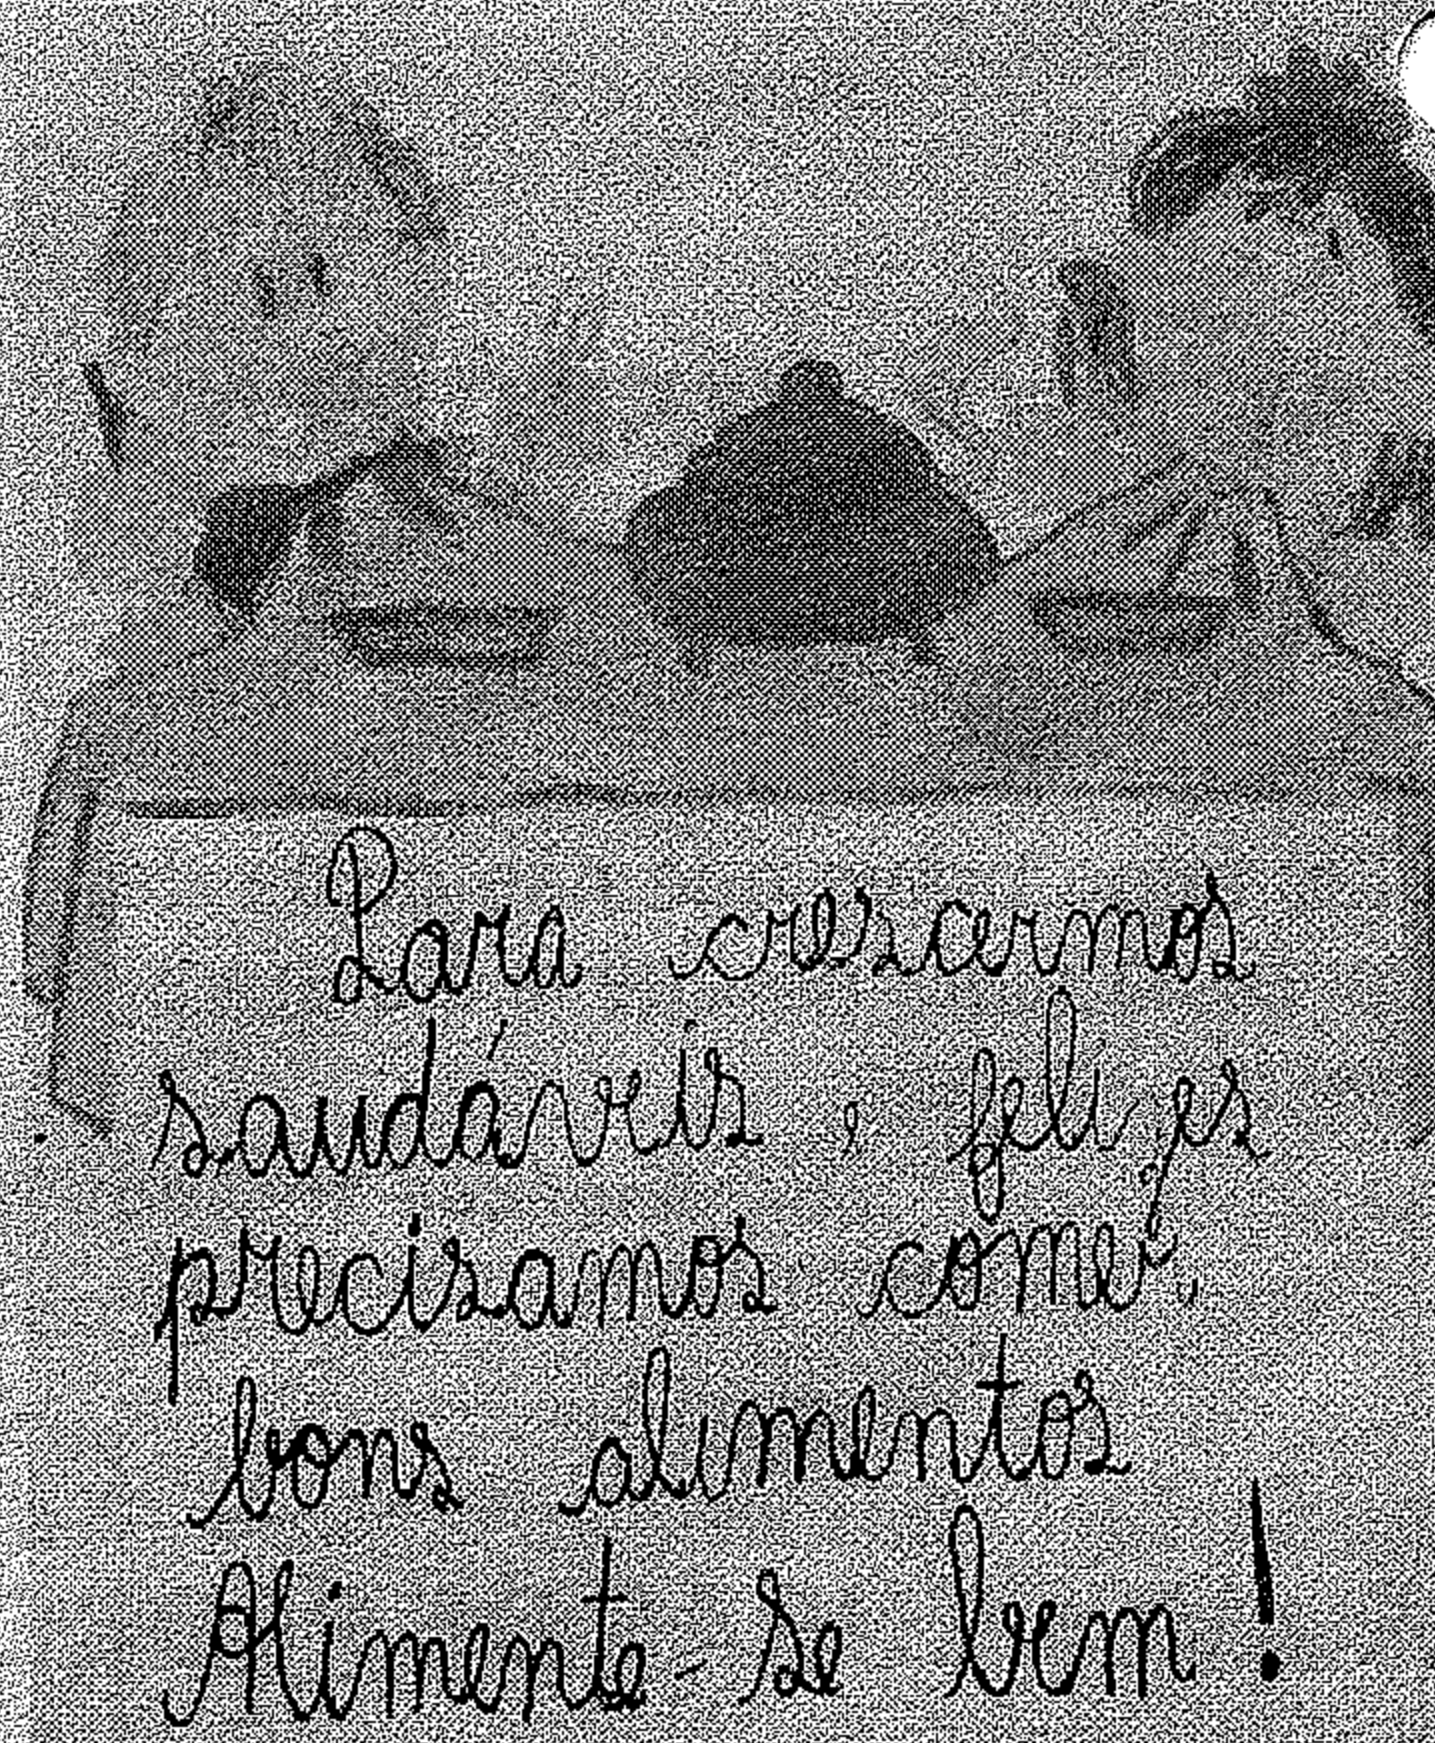 Para crescermos
saudáveis e felizes
precisamos comer
bons alimentos
Alimente-se bem!